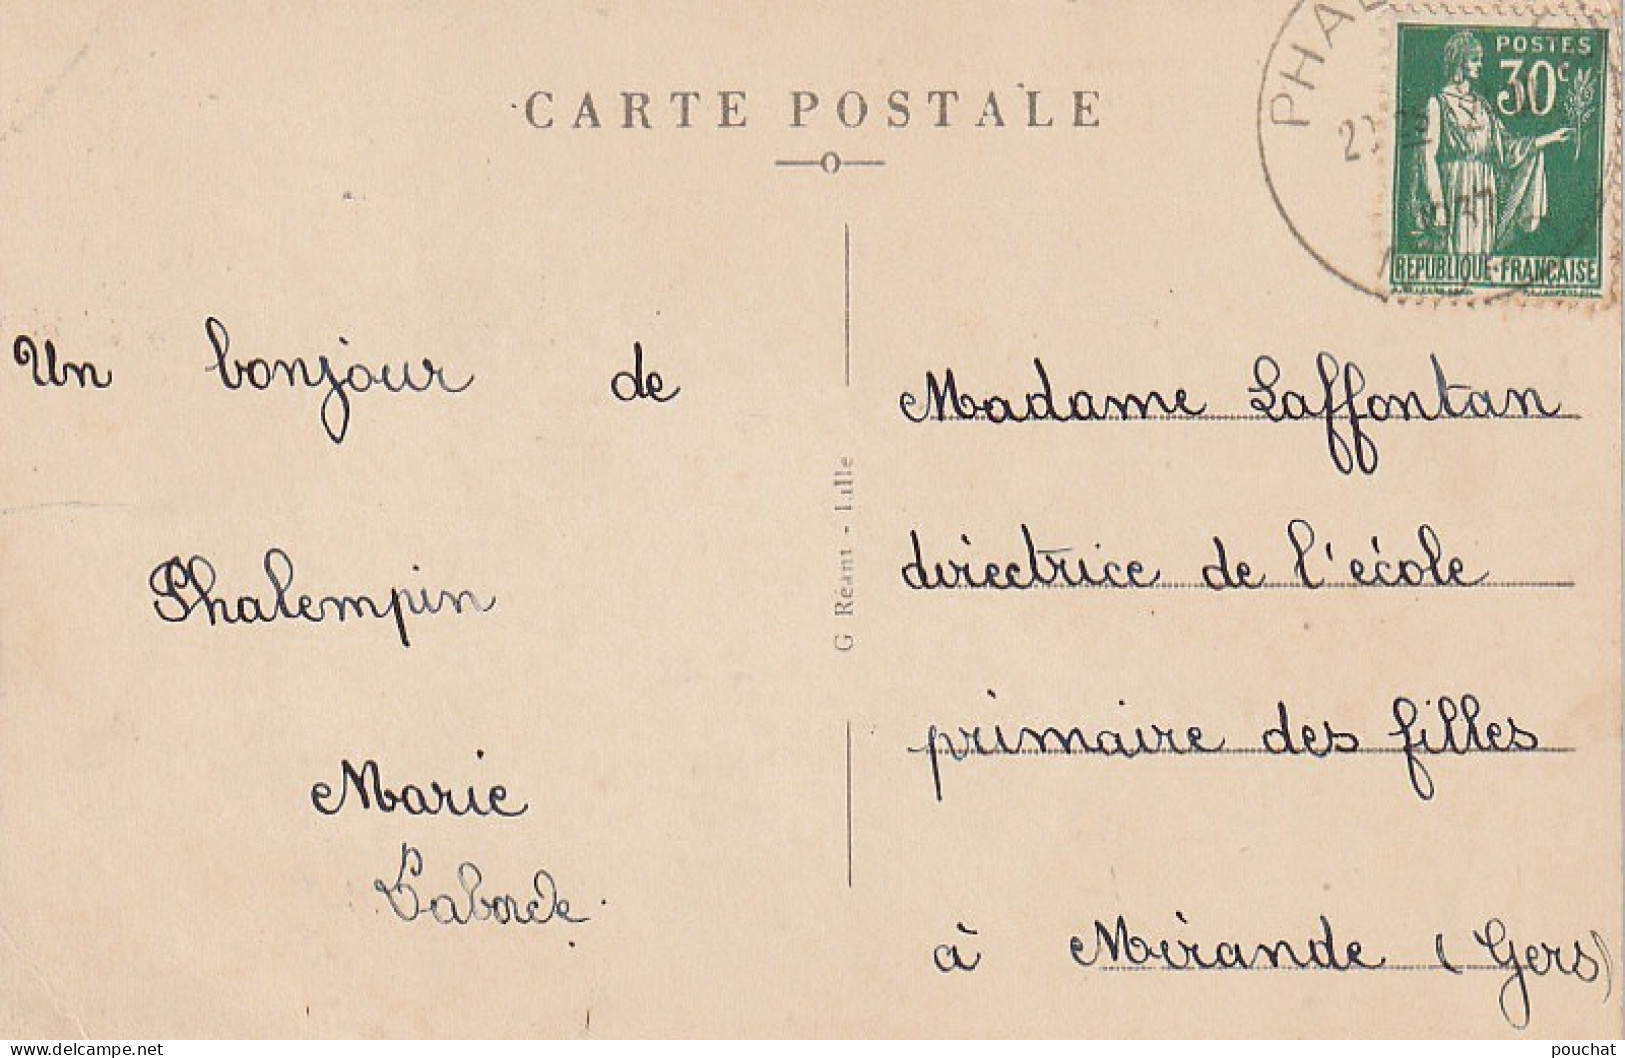 CARTE POSTALE
POSTES
30c
REPUBLIQUE-FRANÇAISE
1937
Un bonjour de
Phalempin
Marie
Laborde.
G Réant - Lille
Madame Laffontan
directrice de l'école
primaire des filles
à Mirande (Gers)
delcampe.net
pouchat